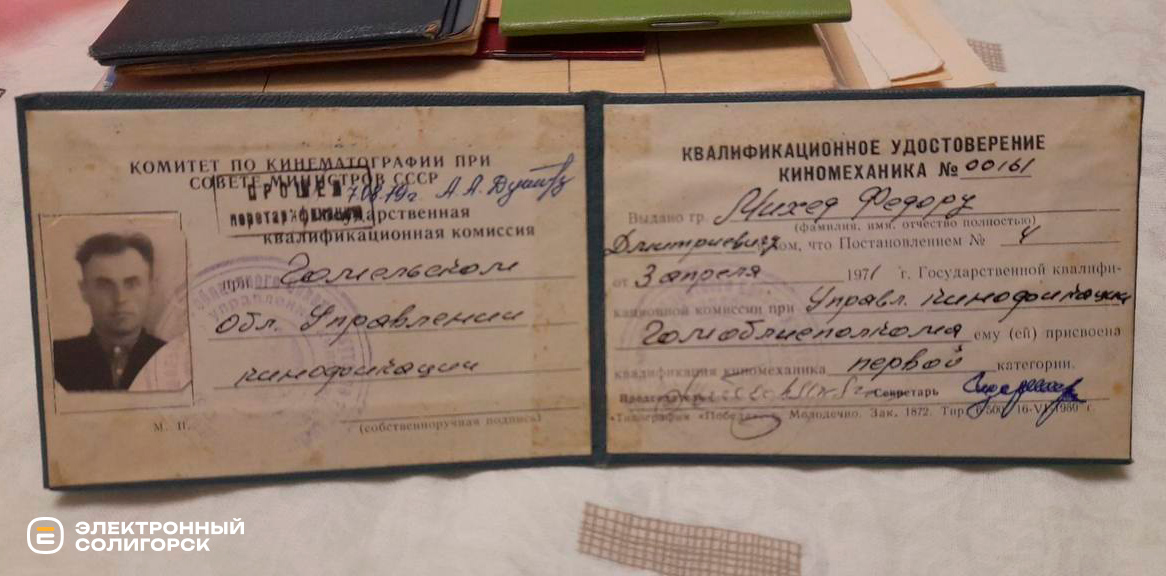 КОМИТЕТ ПО КИНЕМАТОГРАФИИ ПРИ
СОВЕТЕ МИНИСТРОВ СССР
ПРОШЕЛ
7.08.79г.
Государственная
квалификационная комиссия
при Гомельском
обл. Управлении
кинофикации
М. П.
(собственноручная подпись)
КВАЛИФИКАЦИОННОЕ УДОСТОВЕРЕНИЕ
КИНОМЕХАНИКА № 00161
Выдано гр. Михед Федору
(фамилия, имя, отчество полностью)
Дмитриевичу в том, что Постановлением № 4
от 3 апреля 1971 г. Государственной квалифи-
кационной комиссии при Управл. кинофикации
Гомоблисполкома ему (ей) присвоена
квалификация киномеханика первой категории.
Председатель Секретарь
Типография «Победа», г. Молодечно. Зак. 1872. Тир. 1500. 16-VI-1960 г.
ЭЛЕКТРОННЫЙ
СОЛИГОРСК